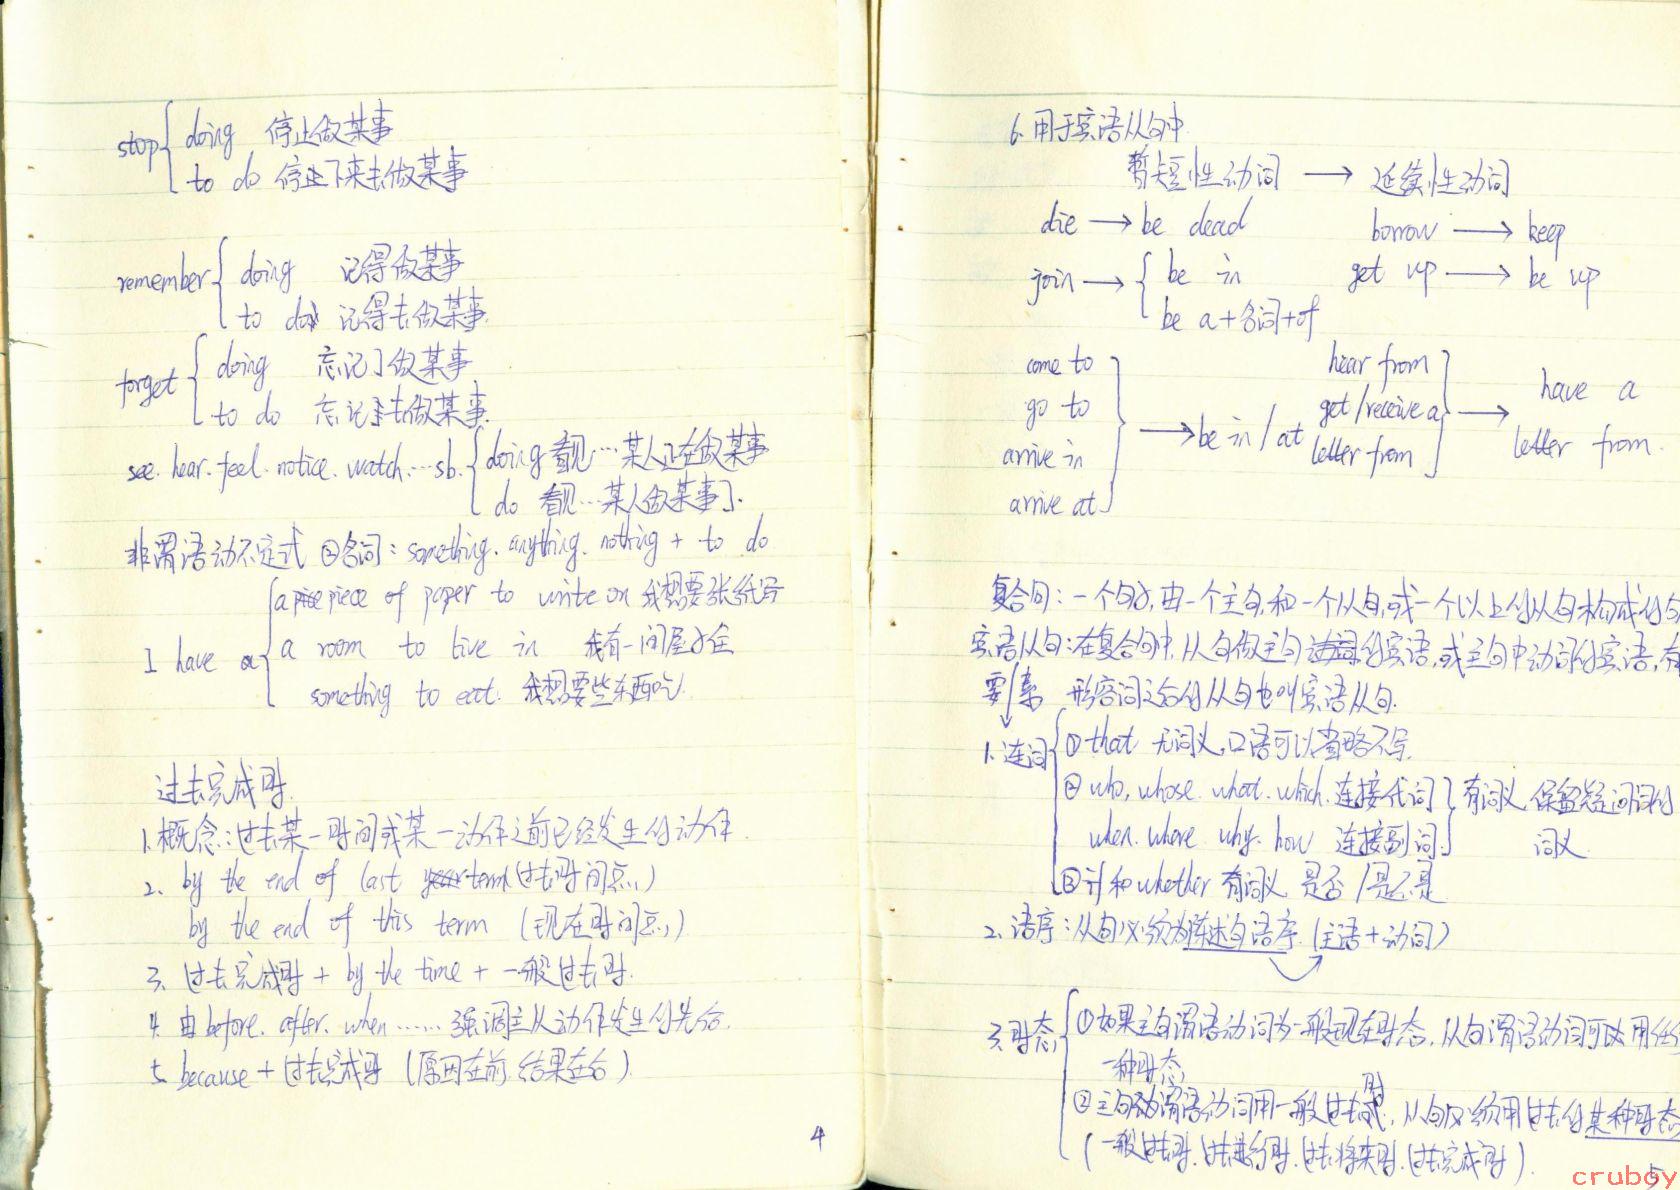 stop { doing 停止做某事
to do 停止下来去做某事
remember { doing 记得做某事
to do 记得去做某事.
forget { doing 忘记了做某事
to do 忘记了去做某事.
see. hear. feel. notice. watch.…sb. { doing 看见…某人正在做某事
do 看见…某人做某事了.
非谓语动不定式 ②名词: something. anything. nothing + to do
I have { a piece of paper to write on 我想要张纸写
a room to live in 我有一间屋子住
something to eat. 我想要些东西吃.
过去完成时.
1. 概念:过去某一时间或某一动作之前已经发生的动作.
2. by the end of last term (过去时间点)
by the end of this term (现在时间点)
3. 过去完成时 + by the time + 一般过去时.
4. 由before. after. when……强调主从动作发生的先后.
5. because + 过去完成时 (原因在前.结果在后).
4
6. 用于宾语从句中.
暂短性动词 → 延续性动词
die → be dead borrow → keep
join → { be in get up → be up
be a+名词+of
come to hear from
go to get/receive a have a
arrive in } → be in / at letter from } → letter from.
arrive at
复合句:一个句子,由一个主句,和一个从句,或一个以上的从句构成的句
宾语从句:在复合句中,从句做主句的宾语,或主句中动词的宾语,有
要素 形容词之后的从句也叫宾语从句.
1. 连词 { ① that 无词义,口语可以省略不写.
② who, whose. what. which. 连接代词 } 有词义.保留疑问词的
when. where. why. how 连接副词. 词义
③ if 和 whether 有词义 是否 / 是不是
2. 语序:从句必须为陈述句语序.(主语+动词)
3. 时态 { ①如果主句谓语动词为一般现在时态,从句谓语动词可以用任
一种时态
②主句谓语动词用一般过去时,从句必须用过去的某种时态
(一般过去时.过去进行时.过去将来时.过去完成时).
5
cruboy